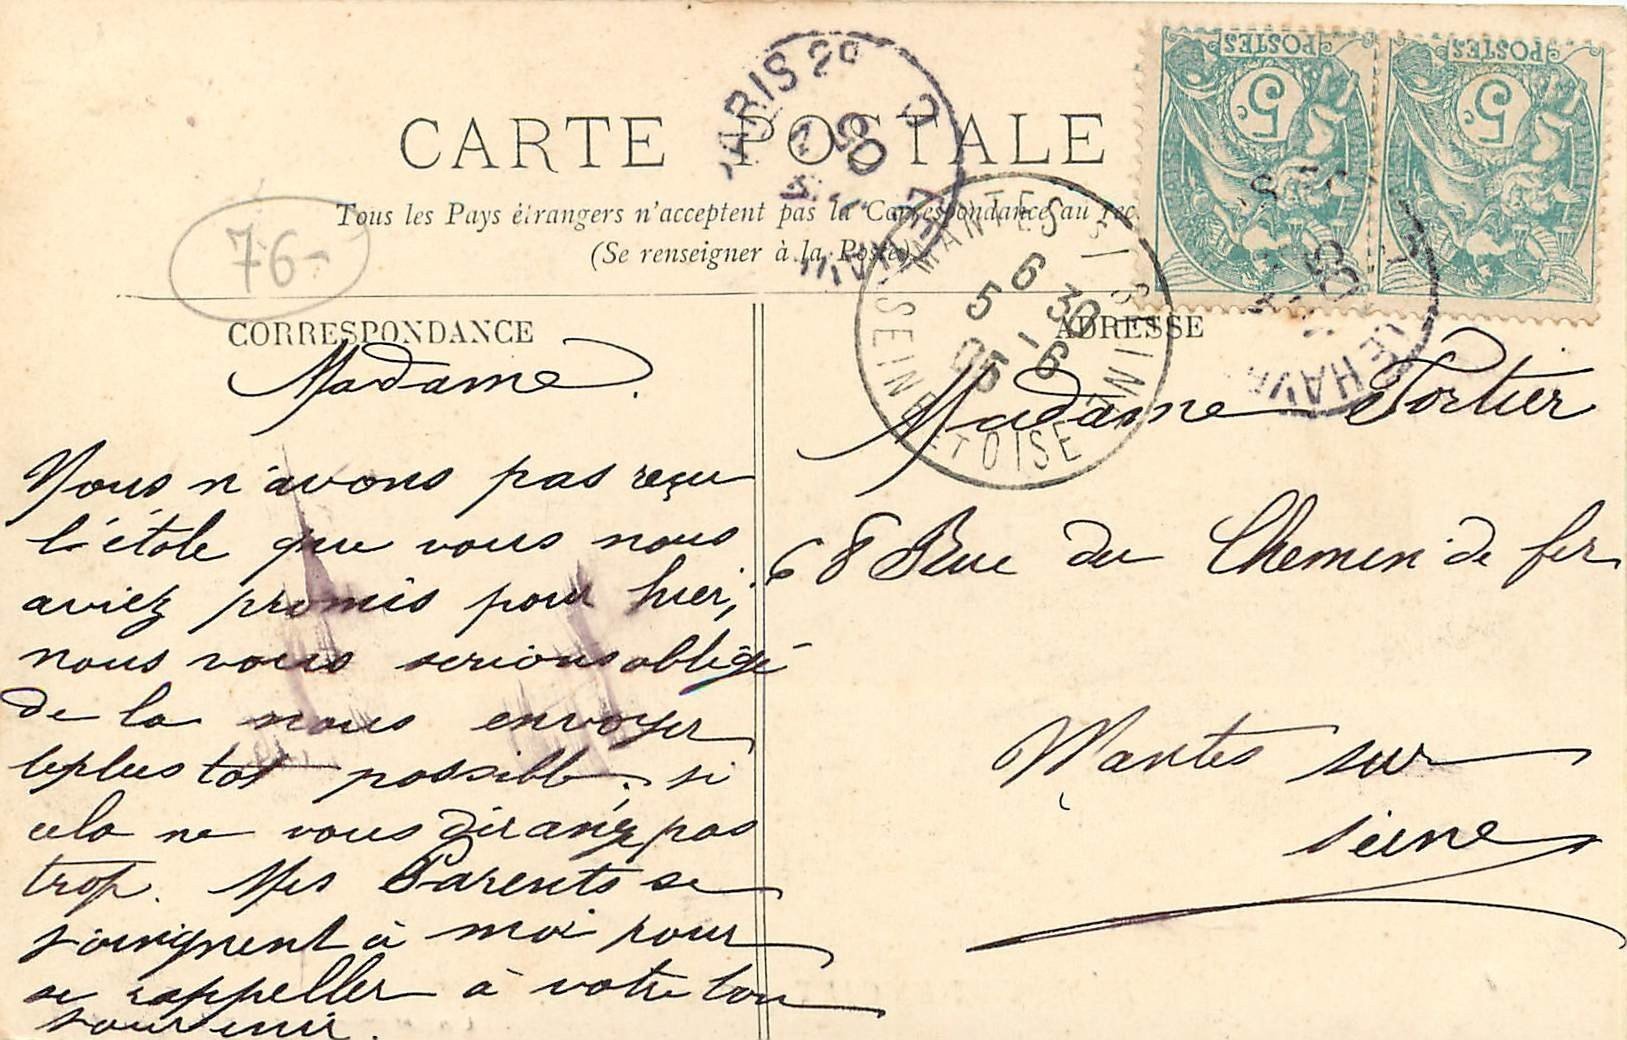 CARTE POSTALE
Tous les Pays étrangers n'acceptent pas la Correspondance au rec
(Se renseigner à la Poste)
76-
CORRESPONDANCE
Madame.
Nous n'avons pas reçu
l'étole que vous nous
aviez promis pour hier,
nous vous serions obligé
de la nous envoyer
le plus tot possible. si
cela ne vous dérange pas
trop. Mes Parents se
soingnent à moi pour
se rappeller à votre bon
souvenir.
ADRESSE
Madame Portier
68 Rue du Chemin de fer
Mantes sur
seine
POSTES
5c
POSTES
5c
PARIS
LE HAVRE
MANTES S/ SEINE
SEINE ET OISE
6 30
5 - 6
05
LE HAVRE